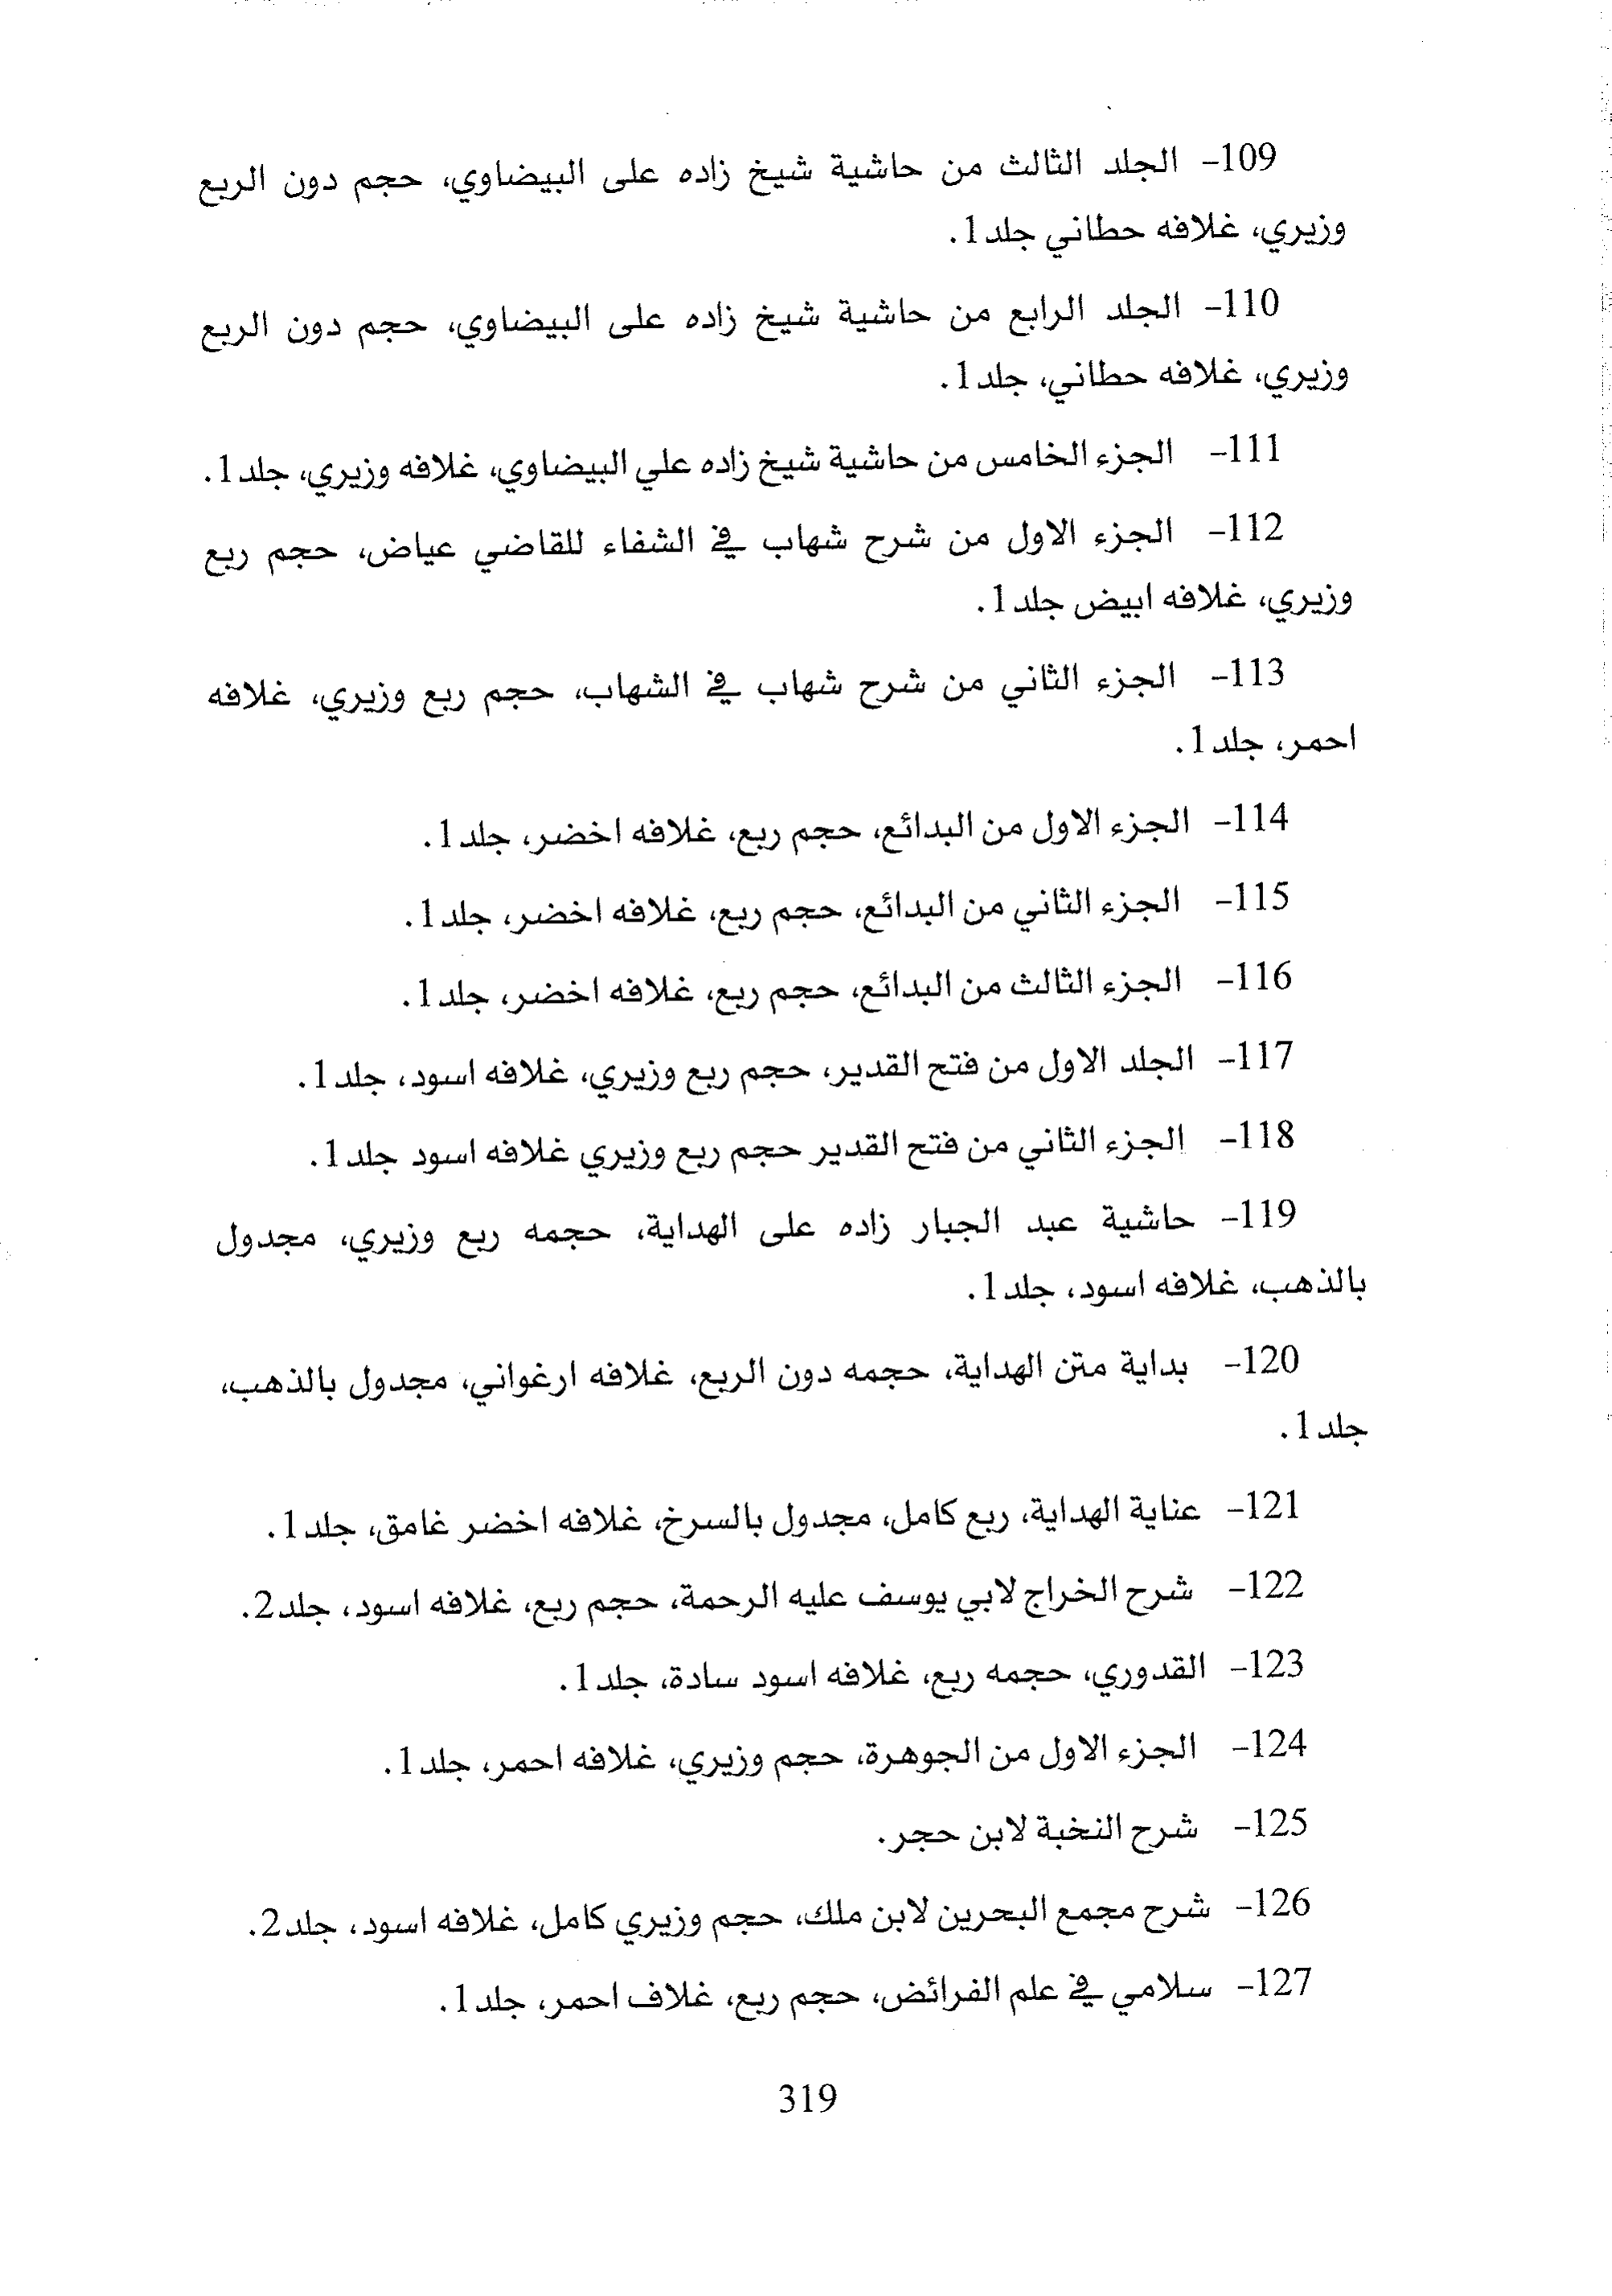 109- الجلد الثالث من حاشية شيخ زاده على البيضاوي، حجم دون الربع
وزيري، غلافه حطاني جلد1.
110- الجلد الرابع من حاشية شيخ زاده على البيضاوي، حجم دون الربع
وزيري، غلافه حطاني، جلد1.
111- الجزء الخامس من حاشية شيخ زاده علي البيضاوي، غلافه وزيري، جلد1.
112- الجزء الاول من شرح شهاب في الشفاء للقاضي عياض، حجم ربع
وزيري، غلافه ابيض جلد1.
113- الجزء الثاني من شرح شهاب في الشهاب، حجم ربع وزيري، غلافه
احمر، جلد1.
114- الجزء الاول من البدائع، حجم ربع، غلافه اخضر، جلد1.
115- الجزء الثاني من البدائع، حجم ربع، غلافه اخضر، جلد1.
116- الجزء الثالث من البدائع، حجم ربع، غلافه اخضر، جلد1.
117- الجلد الاول من فتح القدير، حجم ربع وزيري، غلافه اسود، جلد1.
118- الجزء الثاني من فتح القدير حجم ربع وزيري غلافه اسود جلد1.
119- حاشية عبد الجبار زاده على الهداية، حجمه ربع وزيري، مجدول
بالذهب، غلافه اسود، جلد1.
120- بداية متن الهداية، حجمه دون الربع، غلافه ارغواني، مجدول بالذهب،
جلد1.
121- عناية الهداية، ربع كامل، مجدول بالسرخ، غلافه اخضر غامق، جلد1.
122- شرح الخراج لابي يوسف عليه الرحمة، حجم ربع، غلافه اسود، جلد2.
123- القدوري، حجمه ربع، غلافه اسود سادة، جلد1.
124- الجزء الاول من الجوهرة، حجم وزيري، غلافه احمر، جلد1.
125- شرح النخبة لابن حجر.
126- شرح مجمع البحرين لابن ملك، حجم وزيري كامل، غلافه اسود، جلد2.
127- سلامي في علم الفرائض، حجم ربع، غلاف احمر، جلد1.
319